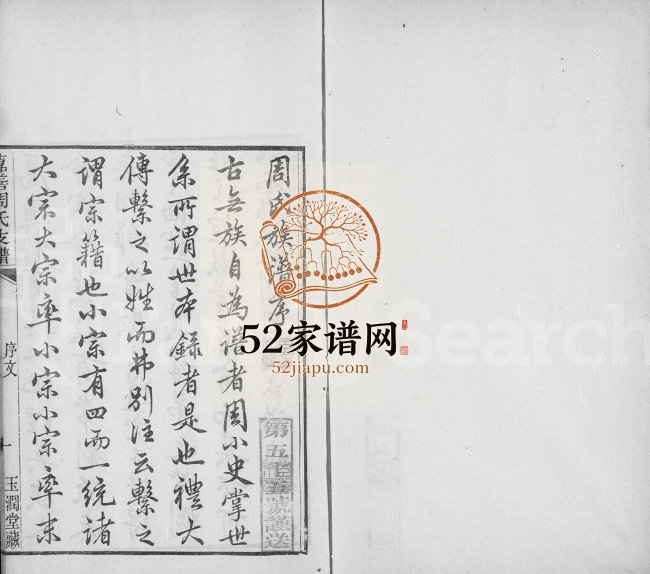 周氏族譜序
古無族自為譜者周小史掌世
系所謂世本錄者是也禮大
傳繫之以姓而弗別注云繫之
謂宗籍也小宗有四而一統諸
大宗大宗率小宗小宗率末
嘉善周氏支譜
序文
玉潤堂藏
第五
號謹送
52家谱网
52jiapu.com
Search